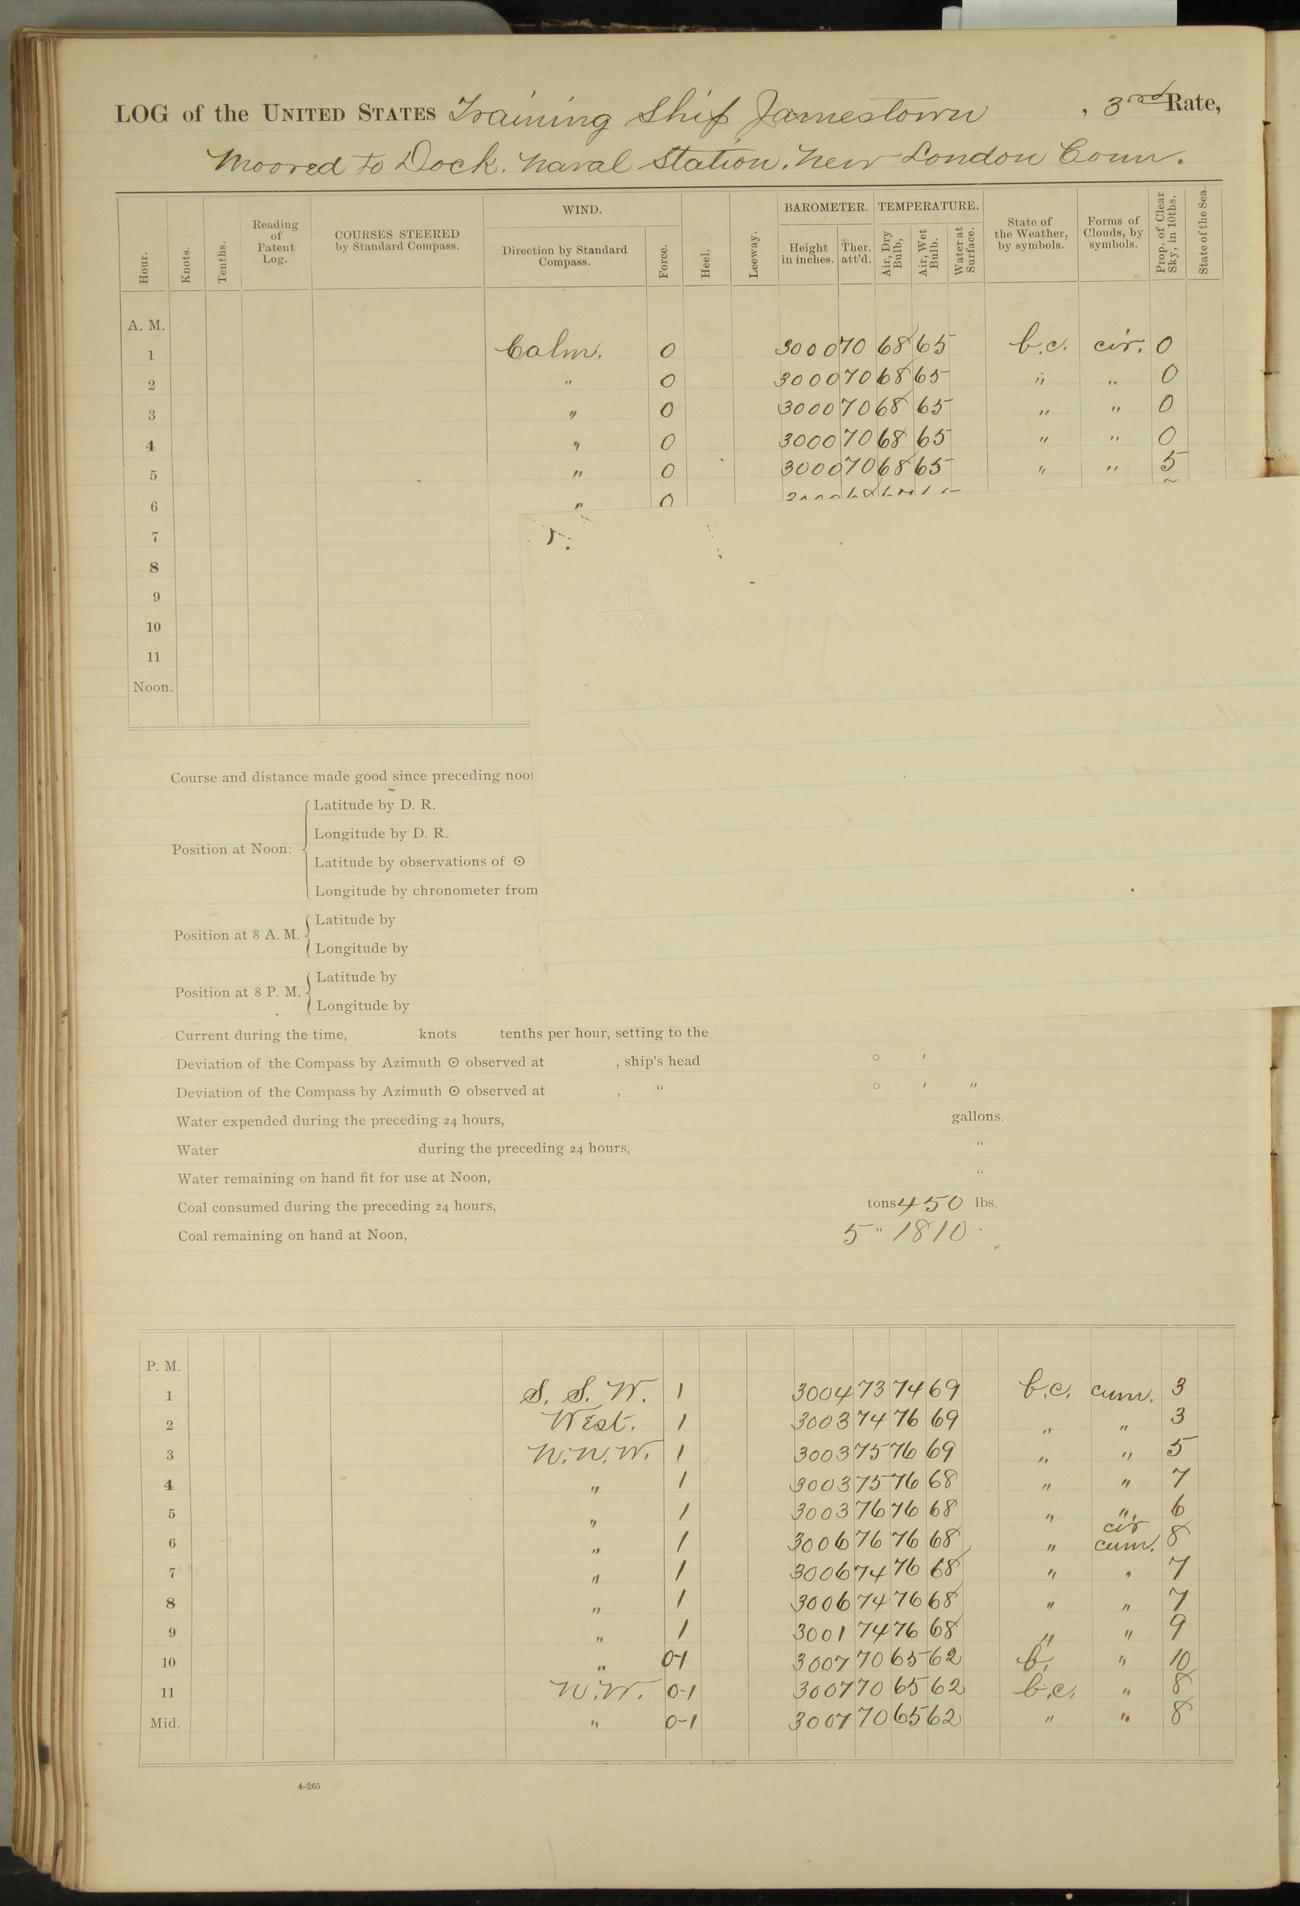 LOG of the UNITED STATES Training Ship Jamestown , 3rd Rate,
Moored to Dock. Naval Station. New London Conn.
Hour. Knots. Tenths. Reading of Patent Log. COURSES STEERED by Standard Compass. WIND. Direction by Standard Compass. Force. Heel. Leeway. BAROMETER. Height in inches. Ther. att'd. TEMPERATURE. Air, Dry Bulb, Air, Wet Bulb. Water at Surface. State of the Weather, by symbols. Forms of Clouds, by symbols. Prop. of Clear Sky, in 10ths. State of the Sea.
A. M.
1 Calm. 0 3000 70 68 65 b.c. cir. 0
2 " 0 3000 70 68 65 " " 0
3 " 0 3000 70 68 65 " " 0
4 " 0 3000 70 68 65 " " 0
5 " 0 3000 70 68 65 " " 5
6 " 0
7
8
9
10
11
Noon.
Course and distance made good since preceding
Position at Noon:
Latitude by D. R.
Longitude by D. R.
Latitude by observations of ☉
Longitude by chronometer from
Position at 8 A. M.
Latitude by
Longitude by
Position at 8 P. M.
Latitude by
Longitude by
Current during the time, knots tenths per hour, setting to the
Deviation of the Compass by Azimuth ☉ observed at , ship's head ° ′
Deviation of the Compass by Azimuth ☉ observed at , " ° ′ "
Water expended during the preceding 24 hours, gallons.
Water during the preceding 24 hours, "
Water remaining on hand fit for use at Noon, "
Coal consumed during the preceding 24 hours, tons 450 lbs.
Coal remaining on hand at Noon, 5 " 1810
P. M.
1 S. S. W. 1 3004 73 74 69 b.c. cum. 3
2 West. 1 3003 74 76 69 " " 3
3 N.N.W. 1 3003 75 76 69 " " 5
4 " 1 3003 75 76 68 " " 7
5 " 1 3003 76 76 68 " " 6
6 " 1 3006 76 76 68 " cir cum. 8
7 " 1 3006 74 76 68 " " 7
8 " 1 3006 74 76 68 " " 7
9 " 1 3001 74 76 68 " " 9
10 " 0-1 3007 70 65 62 b. " 10
11 N.W. 0-1 3007 70 65 62 b.c. " 8
Mid. " 0-1 3007 70 65 62 " " 8
4-265